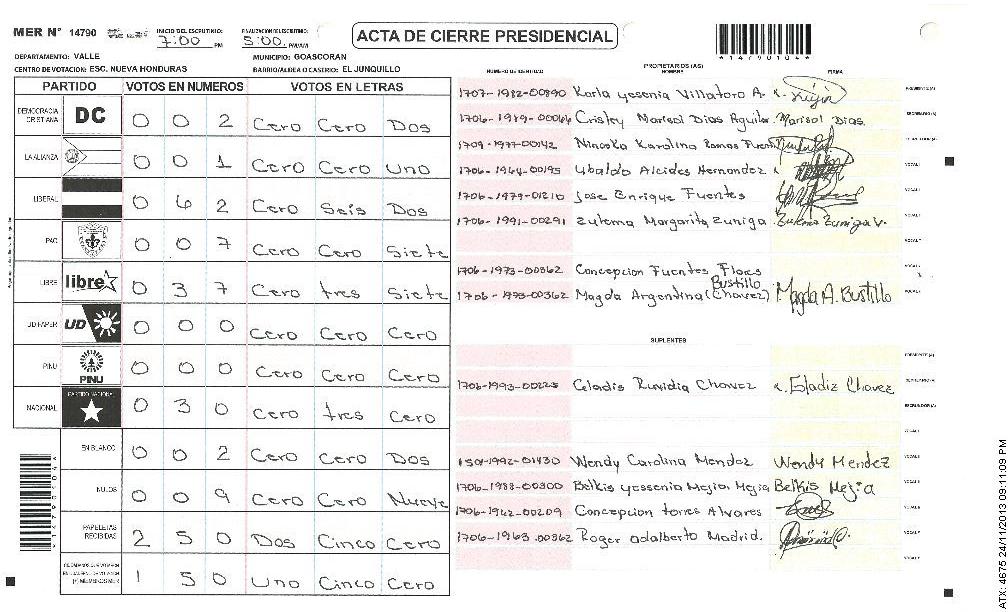 MER N° 14790 INICIO DEL ESCRUTINIO: 7:00 PM FINALIZACION ESCRUTINIO: 5:00 PM/AM
ACTA DE CIERRE PRESIDENCIAL
*14790104*
DEPARTAMENTO: VALLE MUNICIPIO: GOASCORAN
CENTRO DE VOTACION: ESC. NUEVA HONDURAS BARRIO/ALDEA O CASERIO: EL JUNQUILLO
PARTIDO VOTOS EN NUMEROS VOTOS EN LETRAS
DEMOCRACIA CRISTIANA DC 0 0 2 Cero Cero Dos
LA ALIANZA 0 0 1 Cero Cero Uno
LIBERAL 0 6 2 Cero Seis Dos
PAC 0 0 7 Cero Cero Siete
LIBRE libre 0 3 7 Cero tres Siete
UD FAPER UD 0 0 0 Cero Cero Cero
PINU PINU 0 0 0 Cero Cero Cero
NACIONAL PARTIDO NACIONAL 0 3 0 Cero tres Cero
EN BLANCO 0 0 2 Cero Cero Dos
NULOS 0 0 9 Cero Cero Nueve
PAPELETAS RECIBIDAS 2 5 0 Dos Cinco Cero
(+) MIEMBROS MER 1 5 0 Uno Cinco Cero
PROPIETARIOS (AS)
NUMERO DE IDENTIDAD NOMBRE FIRMA
1707-1982-00890 Karla yesenia Villatoro A. PRESIDENTE (A)
1706-1989-00066 Cristey Marisol Dias Aguilar Marisol Dias SECRETARIO (A)
1709-1977-00142 Ninoska Karolina Ramos Fuentes ESCRUTADOR (A)
1706-1964-00195 Ubaldo Alcides Hernandez VOCAL I
1706-1979-01210 Jose Enrique Fuentes VOCAL
1706-1991-00291 Zulema Margarita Zuniga Zulema Zuniga V. VOCAL
VOCAL
1706-1973-00362 Concepcion Fuentes Flores VOCAL
Bustillo
1706-1993-00362 Magda Argentina (Chavez) Magda A. Bustillo VOCAL
SUPLENTES
PRESIDENTE (A)
1706-1993-00225 Celadis Ruvidia Chavez Eladiz Chavez SECRETARIO (A)
ESCRUTADOR (A)
VOCAL
1501-1992-01430 Wendy Carolina Mendez Wendy Mendez VOCAL
1706-1988-00300 Belkis yessenia Mejia Mejia Belkis Mejia VOCAL
1706-1962-00209 Concepcion torres Alvares VOCAL
1706-1963-00362 Roger adalberto Madrid. VOCAL
VOCAL
*14790104*
ATX: 4675 24/11/2013 09:11:09 PM